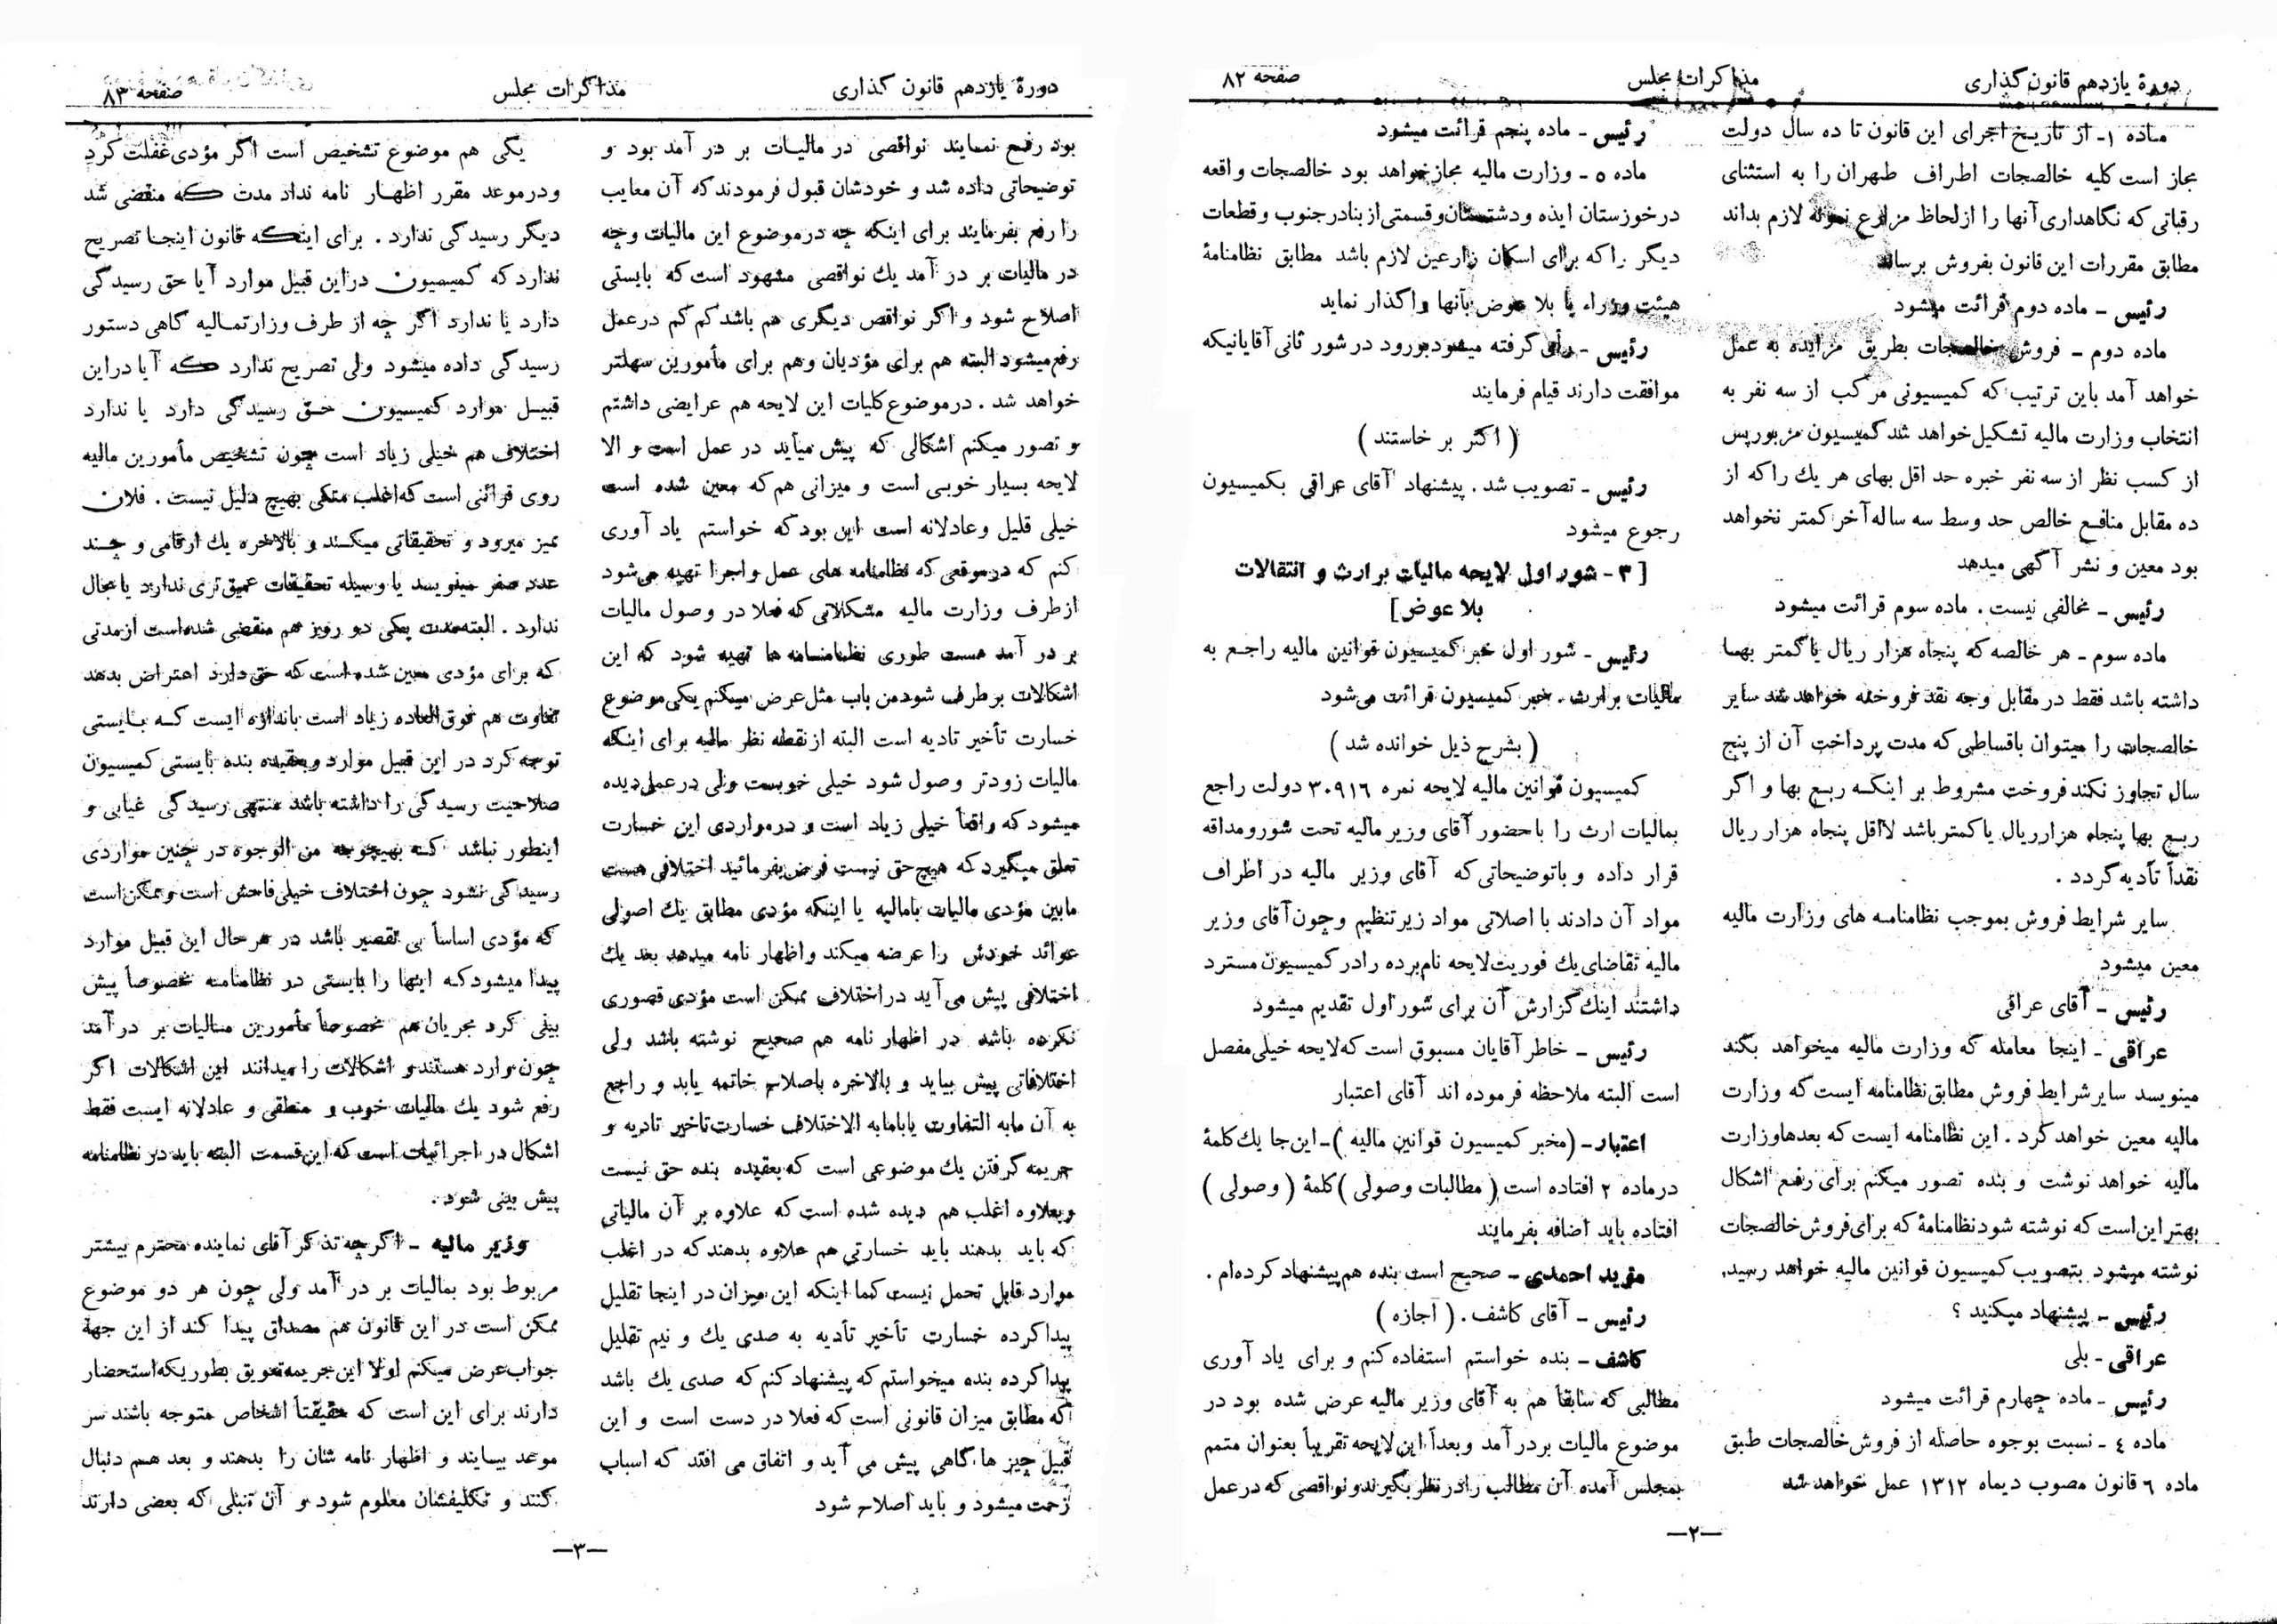 دورهٔ یازدهم قانون گذاری
مذاکرات مجلس
صفحه ۸۲
ماده ۱- از تاریخ اجرای این قانون تا ده سال دولت
مجاز است کلیه خالصجات اطراف طهران را به استثنای
رقباتی که نگاهداری آنها را از لحاظ مزارع نمونه لازم بداند
مطابق مقررات این قانون بفروش برساند
رئیس - ماده دوم قرائت میشود
ماده دوم - فروش خالصجات بطریق مزایده به عمل
خواهد آمد باین ترتیب که کمیسیونی مرکب از سه نفر به
انتخاب وزارت مالیه تشکیل خواهد شد کمیسیون مزبور پس
از کسب نظر از سه نفر خبره حد اقل بهای هر یك را که از
ده مقابل منافع خالص حد وسط سه ساله آخر کمتر نخواهد
بود معین و نشر آگهی میدهد
رئیس - مخالفی نیست . ماده سوم قرائت میشود
ماده سوم - هر خالصه که پنجاه هزار ریال یا کمتر بهـا
داشته باشد فقط در مقابل وجه نقد فروخته خواهد شد سایر
خالصجات را میتوان باقساطی که مدت پرداخت آن از پنج
سال تجاوز نکند فروخت مشروط بر اینکـه ربع بها و اگر
ربع بها پنجاه هزار ریال یا کمتر باشد لااقل پنجاه هزار ریال
نقداً تأدیه گردد .
سایر شرایط فروش بموجب نظامنامـه های وزارت مالیه
معین میشود
رئیس - آقای عراقی
عراقی - اینجا معامله که وزارت مالیه میخواهد بکند
مینویسد سایر شرایط فروش مطابق نظامنامه ایست که وزارت
مالیه معین خواهد کرد . این نظامنامه ایست که بعدها وزارت
مالیه خواهد نوشت و بنده تصور میکنم برای رفع اشکال
بهتر این است که نوشته شود نظامنامهٔ که برای فروش خالصجات
نوشته میشود بتصویب کمیسیون قوانین مالیه خواهد رسید.
رئیس - پیشنهاد میکنید ؟
عراقی - بلی
رئیس - ماده چهارم قرائت میشود
ماده ٤ - نسبت بوجوه حاصله از فروش خالصجات طبق
ماده ٦ قانون مصوب دیماه ۱۳۱۲ عمل خواهد شد
رئیس - ماده پنجم قرائت میشود
ماده ٥ - وزارت مالیه مجاز خواهد بود خالصجات واقعه
در خوزستان ایذه و دشتستان و قسمتی از بنادر جنوب و قطعات
دیگر را که برای اسکان زارعین لازم باشد مطابق نظامنامهٔ
هیئت وزراء با بلا عوض بآنها واگذار نماید
رئیس - رأی گرفته میشود بورود در شور ثانی آقایانیکه
موافقت دارند قیام فرمایند
( اکثر بر خاستند )
رئیس - تصویب شد . پیشنهاد آقای عراقی بکمیسیون
رجوع میشود
[ ۳ - شور اول لایحه مالیات بر ارث و انتقالات
بلا عوض ]
رئیس - شور اول خبر کمیسیون قوانین مالیه راجع به
مالیات بر ارث . خبر کمیسیون قرائت می‌شود
( بشرح ذیل خوانده شد )
کمیسیون قوانین مالیه لایحه نمره ۳۰۹۱٦ دولت راجع
بمالیات ارث را با حضور آقای وزیر مالیه تحت شور و مداقه
قرار داده و با توضیحاتی که آقای وزیر مالیه در اطراف
مواد آن دادند با اصلاتی مواد زیر تنظیم و چون آقای وزیر
مالیه تقاضای یك فوریت لایحه نام برده را در کمیسیون مسترد
داشتند اینك گزارش آن برای شور اول تقدیم میشود
رئیس - خاطر آقایان مسبوق است که لایحه خیلی مفصل
است البته ملاحظه فرموده اند آقای اعتبار
اعتبار - ( مخبر کمیسیون قوانین مالیه ) - این جا یك کلمهٔ
در ماده ۲ افتاده است ( مطالبات وصولی ) کلمهٔ ( وصولی )
افتاده باید اضافه بفرمایند
مؤید احمدی - صحیح است بنده هم پیشنهاد کرده‌ام .
رئیس - آقای کاشف . ( اجازه )
کاشف - بنده خواستم استفاده کنم و برای یاد آوری
مطالبی که سابقاً هم به آقای وزیر مالیه عرض شده بود در
موضوع مالیات بر درآمد و بعداً این لایحه تقریباً بعنوان متمم
بمجلس آمده آن مطالب را در نظر بگیرند و نواقصی که در عمل
—۲—
دورهٔ یازدهم قانون گذاری
مذاکرات مجلس
صفحه ۸۳
بود رفع نمایند نواقصی در مالیـات بر در آمد بود و
توضیحاتی داده شد و خودشان قبول فرمودند که آن معایب
را رفع بفرمایند برای اینکه چه در موضوع این مالیات و چه
در مالیات بر در آمد یك نواقصی مشهود است که بایستی
اصلاح شود و اگر نواقص دیگری هم باشد کم کم در عمل
رفع میشود البته هم برای مؤدیان و هم برای مأمورین سهلتر
خواهد شد . در موضوع کلیات این لایحه هم عرایضی داشتم
و تصور میکنم اشکالی که پیش میآید در عمل است و الا
لایحه بسیار خوبی است و میزانی هم که معین شده است
خیلی قلیل و عادلانه است این بود که خواستم یاد آوری
کنم که در موقعی که نظامنامه های عمل و اجرا تهیه می‌شود
از طرف وزارت مالیه مشکلاتی که فعلا در وصول مالیات
بر در آمد هست طوری نظامنـامه ها تهیه شود که این
اشکالات بر طرف شود من باب مثل عرض میکنم یکی موضوع
خسارت تأخیر تادیه است البته از نقطه نظر مالیه برای اینکه
مالیات زودتر وصول شود خیلی خوبست ولی در عمل دیده
میشود که واقعاً خیلی زیاد است و در مواردی این خسارت
تعلق میگیرد که هیچ حق نیست فرض بفرمائید اختلافی هست
مابین مؤدی مالیات با مالیه یا اینکه مؤدی مطابق یك اصولی
عوائد خودش را عرضه میکند و اظهار نامه میدهد بعد یك
اختلافی پیش می آید در اختلاف ممکن است مؤدی قصوری
نکرده باشد در اظهار نامه هم صحیح نوشته باشد ولی
اختلافاتی پیش بیاید و بالاخره باصلاح خاتمه یابد و راجع
به آن مابه التفاوت یا بامابه الاختلاف خسارت تاخیر تادیه و
جریمه گرفتن یك موضوعی است که بعقیده بنده حق نیست
و بعلاوه اغلب هم دیده شده است که علاوه بر آن مالیاتی
که باید بدهند باید خسارتی هم علاوه بدهند که در اغلب
موارد قابل تحمل نیست کما اینکه این میزان در اینجا تقلیل
پیدا کرده خسارت تأخیر تأدیه به صدی یك و نیم تقلیل
پیدا کرده بنده میخواستم که پیشنهاد کنم که صدی یك باشد
که مطابق میزان قانونی است که فعلا در دست است و این
قبیل چیز ها گاهی پیش می آید و اتفاق می افتد که اسباب
زحمت میشود و باید اصلاح شود
یکی هم موضوع تشخیص است اگر مؤدی غفلت کرد
و در موعد مقرر اظهـار نامه نداد مدت کـه منقضی شد
دیگر رسیدگی ندارد . برای اینکـه قانون اینجـا تصریح
ندارد که کمیسیون در این قبیل موارد آیا حق رسیدگی
دارد یا ندارد اگر چه از طرف وزارتمـالیه گاهی دستور
رسیدگی داده میشود ولی تصریح ندارد کـه آیا در این
قبیـل موارد کمیسیون حـق رسیدگی دارد یا ندارد
اختلاف هم خیلی زیاد است چون تشخیص مأمورین مالیه
روی قرائنی است که اغلب متکی بهیچ دلیل نیست . فلان
ممیز میرود و تحقیقاتی میکـند و بالاخره یك ارقامی و چـند
عدد صفر مینویسد یا وسیله تحقیقات عمیق تری ندارد یا مجال
ندارد . البته مدت یکی دو روز هم منقضی شده است از مدتی
که برای مؤدی معین شده است که حق دارد اعتراض بدهد
تفاوت هم فوق العاده زیاد است باندازه ایست کـه بـایستی
توجه کرد در این قبیل موارد و بعقیده بنده بایستی کمیسیون
صلاحیت رسیدگی را داشته باشد منتهی رسیدگی غیابی و
اینطور نباشد کـه بهیچوجه من الوجوه در چنین مواردی
رسیدگی نشود چون اختلاف خیلی فاحش است و ممکن است
که مؤدی اساساً بی تقصیر باشد در هر حال این قبیل موارد
پیدا میشود کـه اینها را بایستی در نظامنامـه مخصوصاً پیش
بینی کرد مجریان هم مخصوصاً مأمورین مـالیات بر در آمد
چون وارد هستند و اشکالات را میدانند این اشکالات اگر
رفع شود یك مالیات خوب و منطقی و عادلانه ایست فقط
اشکال در اجرائیات است که این قسمت البته باید در نظامنامه
پیش بینی شود.
وزیر مالیه - اگر چه تذکر آقای نماینده محترم بیشتر
مربوط بود بمالیات بر در آمد ولی چون هر دو موضوع
ممکن است در این قانون هم مصداق پیدا کند از این جههٔ
جواب عرض میکنم اولا این جریمه تعویق بطوریکه استحضار
دارند برای این است که حقیقتاً اشخاص متوجه باشند سر
موعد بیـایند و اظهار نامه شان را بدهند و بعد هـم دنبال
کنند و تکلیفشان معلوم شود و آن تنبلی که بعضی دارند
—۳—